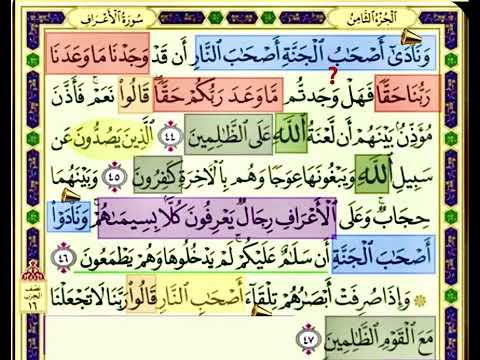 الجزء الثامن
سورة الأعراف
وَنَادَىٰٓ أَصْحَٰبُ ٱلْجَنَّةِ أَصْحَٰبَ ٱلنَّارِ أَن قَدْ وَجَدْنَا مَا وَعَدَنَا
رَبُّنَا حَقًّا فَهَلْ وَجَدتُّم مَّا وَعَدَ رَبُّكُمْ حَقًّا ۖ قَالُوا۟ نَعَمْ ۚ فَأَذَّنَ
?
مُؤَذِّنٌۢ بَيْنَهُمْ أَن لَّعْنَةُ ٱللَّهِ عَلَى ٱلظَّٰلِمِينَ ٤٤ ٱلَّذِينَ يَصُدُّونَ عَن
سَبِيلِ ٱللَّهِ وَيَبْغُونَهَا عِوَجًا وَهُم بِٱلْءَاخِرَةِ كَٰفِرُونَ ٤٥ وَبَيْنَهُمَا
حِجَابٌ ۚ وَعَلَى ٱلْأَعْرَافِ رِجَالٌ يَعْرِفُونَ كُلًّۢا بِسِيمَىٰهُمْ ۚ وَنَادَوْا۟
أَصْحَٰبَ ٱلْجَنَّةِ أَن سَلَٰمٌ عَلَيْكُمْ ۚ لَمْ يَدْخُلُوهَا وَهُمْ يَطْمَعُونَ ٤٦
۞ وَإِذَا صُرِفَتْ أَبْصَٰرُهُمْ تِلْقَآءَ أَصْحَٰبِ ٱلنَّارِ قَالُوا۟ رَبَّنَا لَا تَجْعَلْنَا
مَعَ ٱلْقَوْمِ ٱلظَّٰلِمِينَ ٤٧
نصف
الحزب
١٦